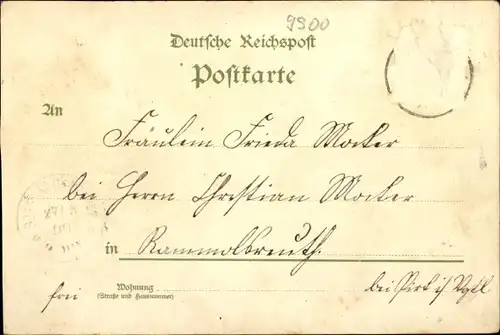 9900
Deutsche Reichspost
Postkarte
An
Fräulein Frieda Mocker
bei Herrn Christian Mocker
in Rammolsreuth.
Wohnung
(Straße und Hausnummer)
frei
bei Pirk i/ Vgtl